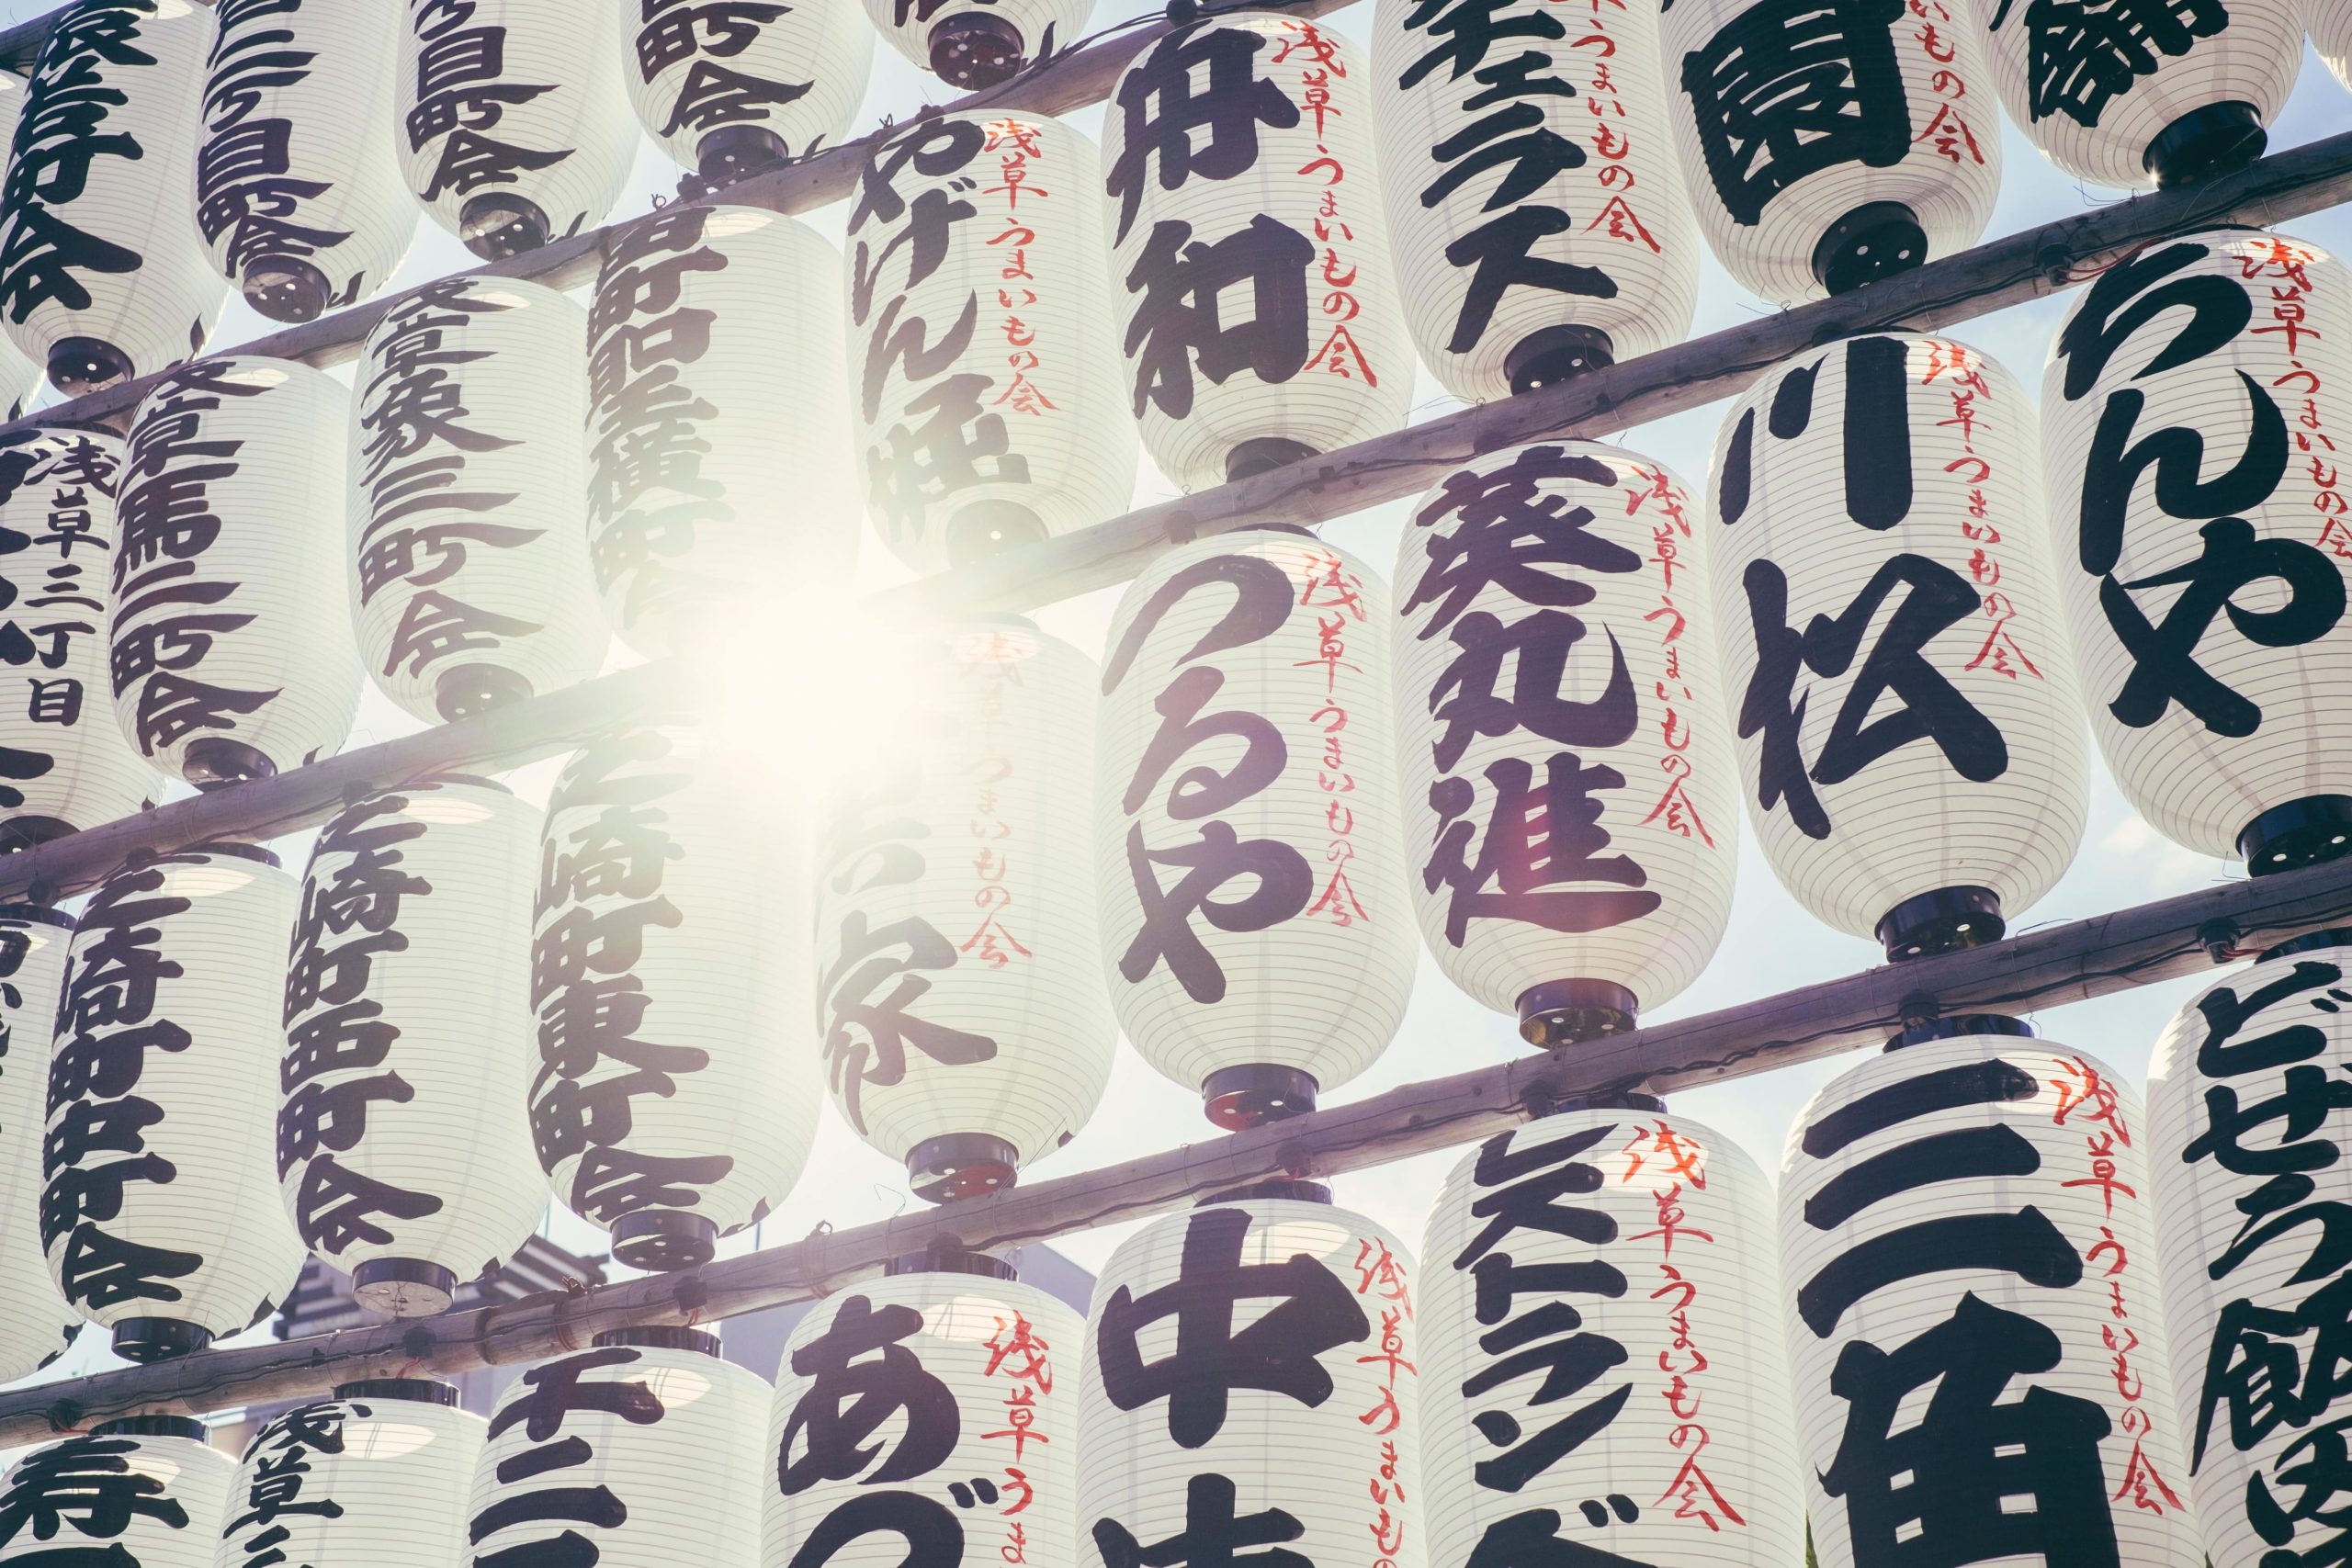 町会
二丁目町会
丁目町会
町会
やげん堀
浅草うまいもの会
舟和
浅草うまいもの会
ラス
うまいもの会
園
いもの会
浅草三丁目
浅草馬二町会
浅草象三町会
町会
葵丸進
浅草うまいもの会
川松
浅草うまいもの会
ちんや
浅草うまいもの会
芝崎町中町会
芝崎町西町会
芝崎町東町会
家
浅草うまいもの会
つるや
浅草うまいもの会
寿
浅草
千二
あづ
浅草うま
中
浅草うまいも
レストラン
浅草うまいもの会
三角
浅草うまいもの会
どぜう飯田